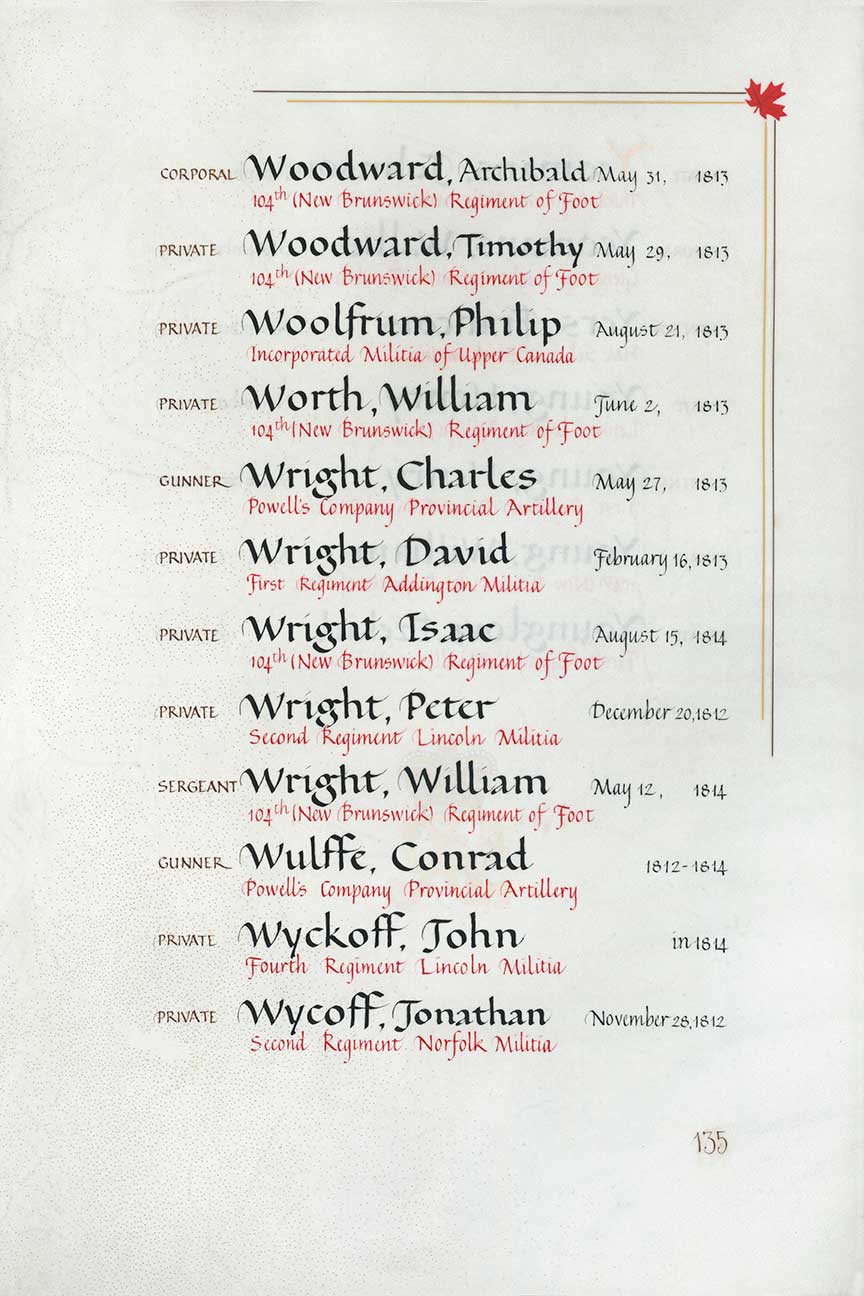 CORPORAL Woodward, Archibald May 31, 1813
104th (New Brunswick) Regiment of Foot
PRIVATE Woodward, Timothy May 29, 1813
104th (New Brunswick) Regiment of Foot
PRIVATE Woolfrum, Philip August 21, 1813
Incorporated Militia of Upper Canada
PRIVATE Worth, William June 2, 1813
104th (New Brunswick) Regiment of Foot
GUNNER Wright, Charles May 27, 1813
Powell's Company Provincial Artillery
PRIVATE Wright, David February 16, 1813
First Regiment Addington Militia
PRIVATE Wright, Isaac August 15, 1814
104th (New Brunswick) Regiment of Foot
PRIVATE Wright, Peter December 20, 1812
Second Regiment Lincoln Militia
SERGEANT Wright, William May 12, 1814
104th (New Brunswick) Regiment of Foot
GUNNER Wulffe, Conrad 1812-1814
Powell's Company Provincial Artillery
PRIVATE Wyckoff, John in 1814
Fourth Regiment Lincoln Militia
PRIVATE Wycoff, Jonathan November 28, 1812
Second Regiment Norfolk Militia
135